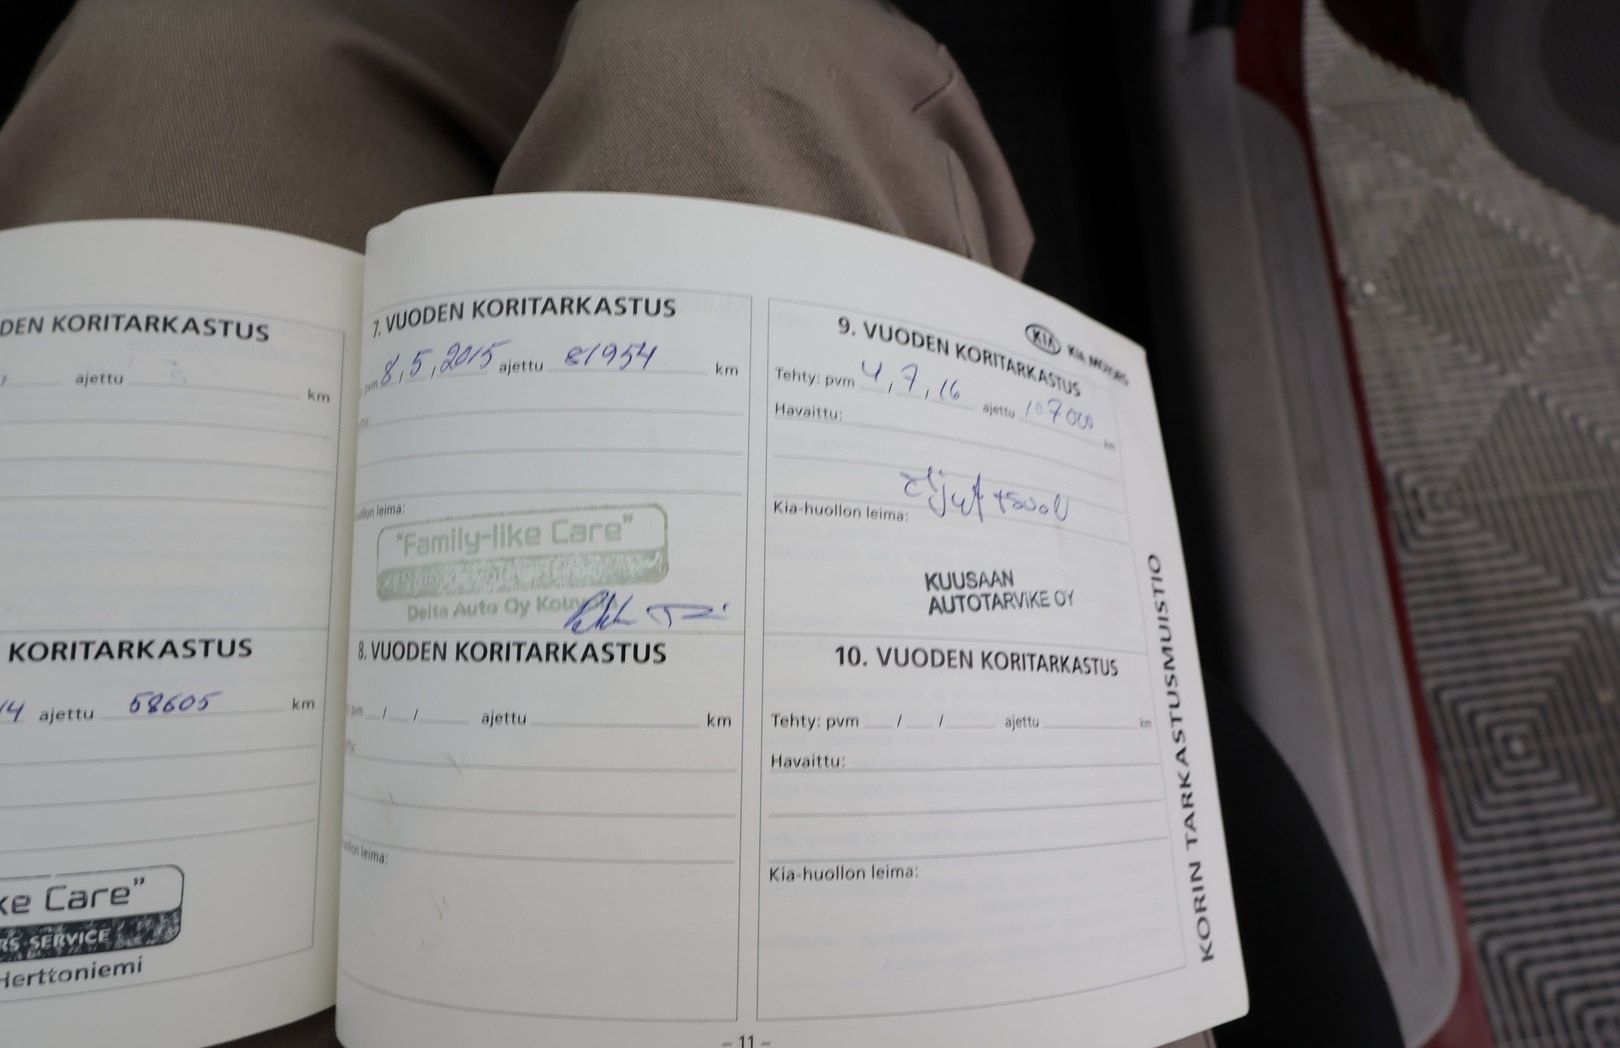 DEN KORITARKASTUS
ajettu km
KORITARKASTUS
14 ajettu 58605 km
ke Care”
RS SERVICE
Herttoniemi
7. VUODEN KORITARKASTUS
pvm 8,5,2015 ajettu 81954 km
leima:
“Family-like Care”
Delta Auto Oy
8. VUODEN KORITARKASTUS
pvm / / ajettu km
leima:
KIA KIA MOTORS
9. VUODEN KORITARKASTUS
Tehty: pvm 4,7,16 ajettu 107000 km
Havaittu:
Kia-huollon leima:
KUUSAAN
AUTOTARVIKE OY
10. VUODEN KORITARKASTUS
Tehty: pvm / / ajettu km
Havaittu:
Kia-huollon leima:
KORIN TARKASTUSMUISTIO
– 11 –